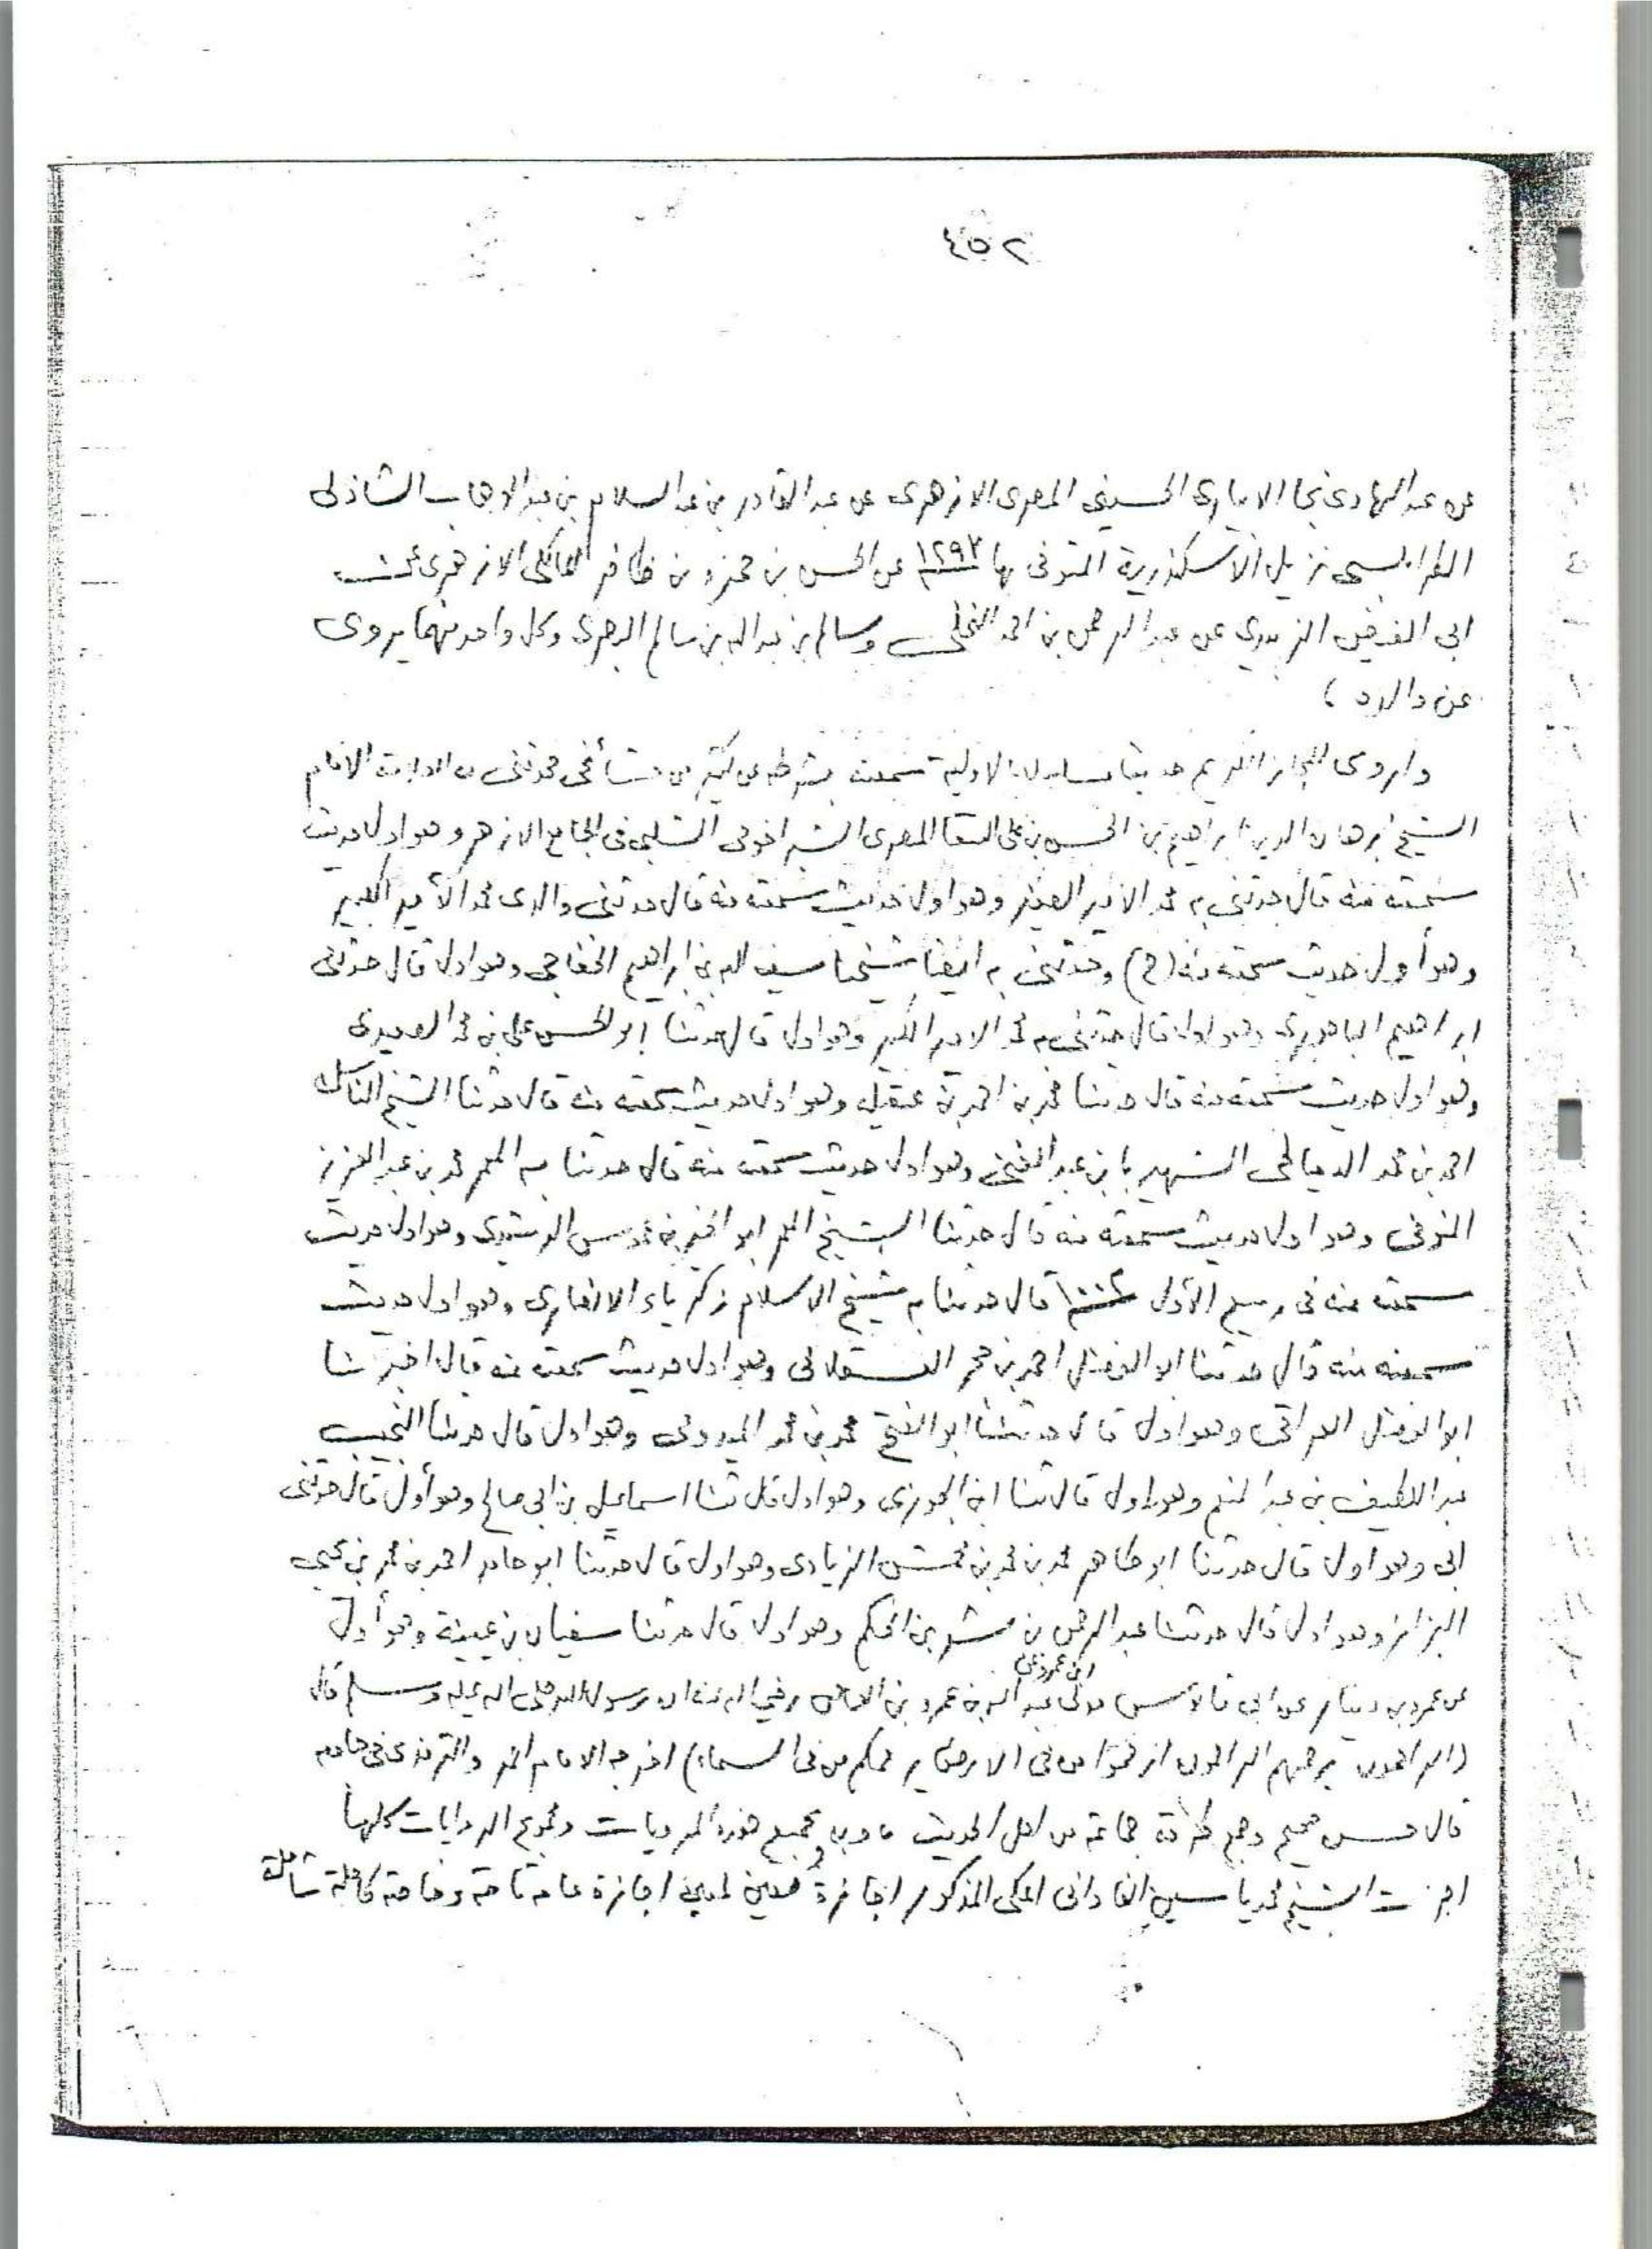 ٤٥٢
عن عبد الهادي نجا الابياري الحسيني المصري الازهري عن عبد القادر بن عبد السلام بن عبد الوهاب الشاذلي
الطرابلسي نزيل الاسكندرية المتوفى بها ١٢٩٢ عن الحسن بن حمزة بن ظافر المالكي الازهري عن
ابي الفيض الزبيدي عن عبد الرحمن بن احمد النخلي وسالم بن عبد الله بن سالم البصري وكل واحد منهما يروي
عن والده )
واروي للمجاز الكريم حديثا مسلسلا بالاولية سمعته بشرطه عن كثير من مشائخي حدثني به العلامة الامام
الشيخ برهان الدين ابراهيم بن الحسن بن علي السقا المصري الشبراخومي الشلبي في الجامع الازهر وهو اول حديث
سمعته منه قال حدثني به محمد الامير الصغير وهو اول حديث سمعته منه قال حدثني والدي محمد الأمير الكبير
وهو أول حديث سمعته منه (ح) وحدثني به ايضا شيخنا سيف الله بن ابراهيم الخفاجي وهو اول قال حدثني
ابراهيم الباجوري وهو اول قال حدثني به محمد الامير الكبير وهو اول قال حدثنا ابو الحسن علي بن محمد الصعيدي
وهو اول حديث سمعته منه قال حدثنا محمد بن احمد بن عقيلة وهو اول حديث سمعته منه قال حدثنا الشيخ الناسك
احمد بن محمد الدمياطي الشهير بابن عبد الغني وهو اول حديث سمعته منه قال حدثنا به المعمر محمد بن عبد العزيز
المنوفي وهو اول حديث سمعته منه قال حدثنا الشيخ المعمر ابو الخير بن عموس الرشيدي وهو اول حديث
سمعته منه في ربيع الأول ١٠٠٢ قال حدثنا به شيخ الاسلام زكرياء الانصاري وهو اول حديث
سمعته منه قال حدثنا ابو الفضل احمد بن حجر العسقلاني وهو اول حديث سمعته منه قال اخبرنا
ابو الفضل العراقي وهو اول قال حدثنا ابو الفتح محمد بن محمد الميدومي وهو اول قال حدثنا النجيب
عبد اللطيف بن عبد المنعم وهو اول قال ثنا ابن الجوزي وهو اول قال ثنا اسماعيل بن ابي صالح وهو أول قال حدثني
ابي وهو اول قال حدثنا ابو طاهر محمد بن محمد بن محمش الزيادي وهو اول قال حدثنا ابو حامد احمد بن محمد بن يحيى
البزاز وهو اول قال حدثنا عبد الرحمن بن بشر بن الحكم وهو اول قال حدثنا سفيان بن عيينة وهو أول
عن عمرو بن دينار عن ابي قابوس مولى عبد الله بن عمرو بن العاص رضي الله عنه ان رسول الله صلى الله عليه وسلم قال
(الراحمون يرحمهم الرحمن ارحموا من في الارض يرحمكم من في السماء) اخرجه الامام احمد والترمذي في جامعه
قال حسن صحيح وجمع طرقه جماعة من اهل الحديث وبجميع هذه المرويات ومجموع الروايات كلها
اجزت الشيخ محمد ياسين الفاداني المكي المذكور اجازة معين لمعين اجازة عامة تامة وخاصة كاملة شاملة